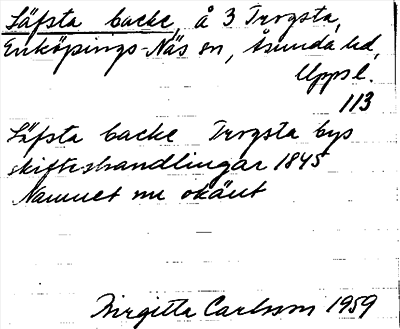 Läfsta backe, å 3 Trogsta,
Enköpings-Näs sn, Åsunda hd,
Upps l.
113
Läfsta backe Trogsta bys
skifteshandlingar 1845
Namnet nu okänt
Birgitta Carlsson 1959